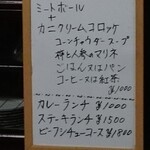 ミートボール
+
カニクリームコロッケ
コーンチャウダースープ
柿と人参のマリネ
ごはん又はパン
コーヒー又は紅茶
¥1000
カレーランチ ¥1000
ステーキランチ ¥1500
ビーフシチューコース ¥1800